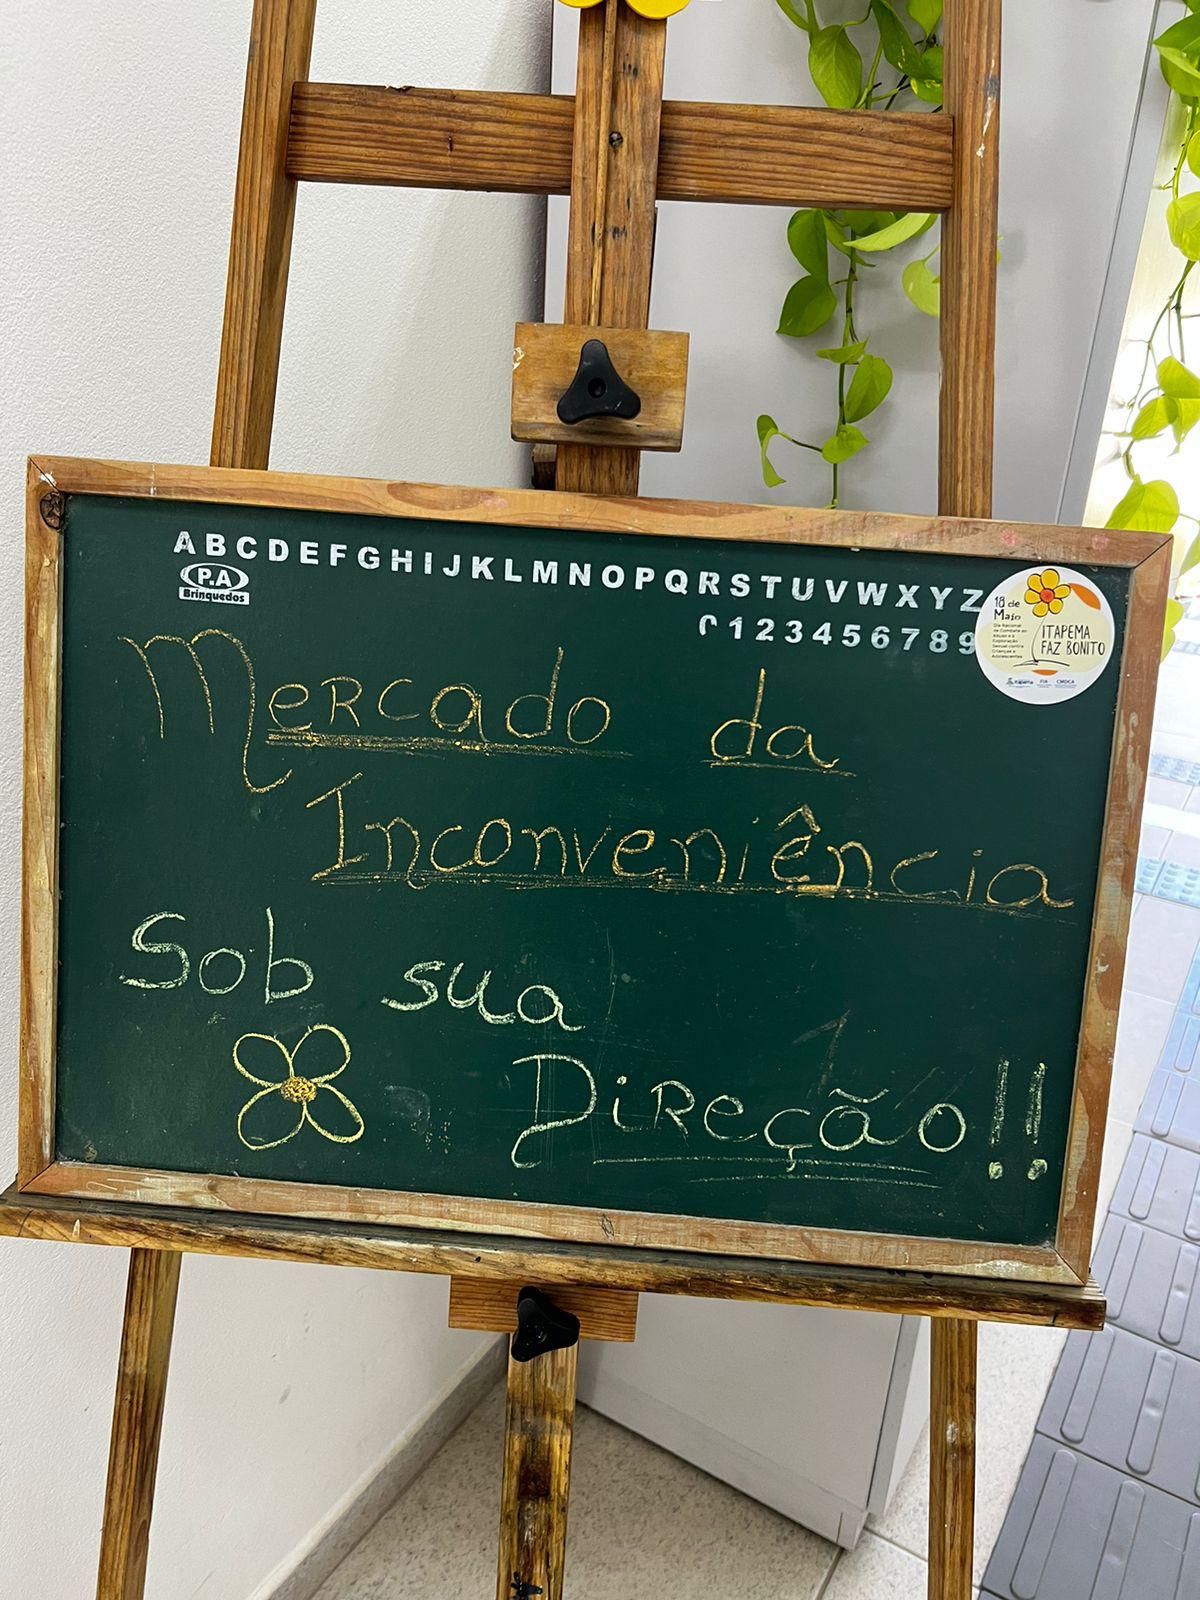 ABCDEFGHIJKLMNOPQRSTUVWXYZ
P.A
Brinquedos
0123456789
18 de
Maio
Dia Nacional
de Combate ao
Abuso e à
Exploração
Sexual contra
Crianças e
Adolescentes
ITAPEMA
FAZ BONITO
Itapema FIA CMDCA
Mercado da
Inconveniência
Sob sua
Direção!!